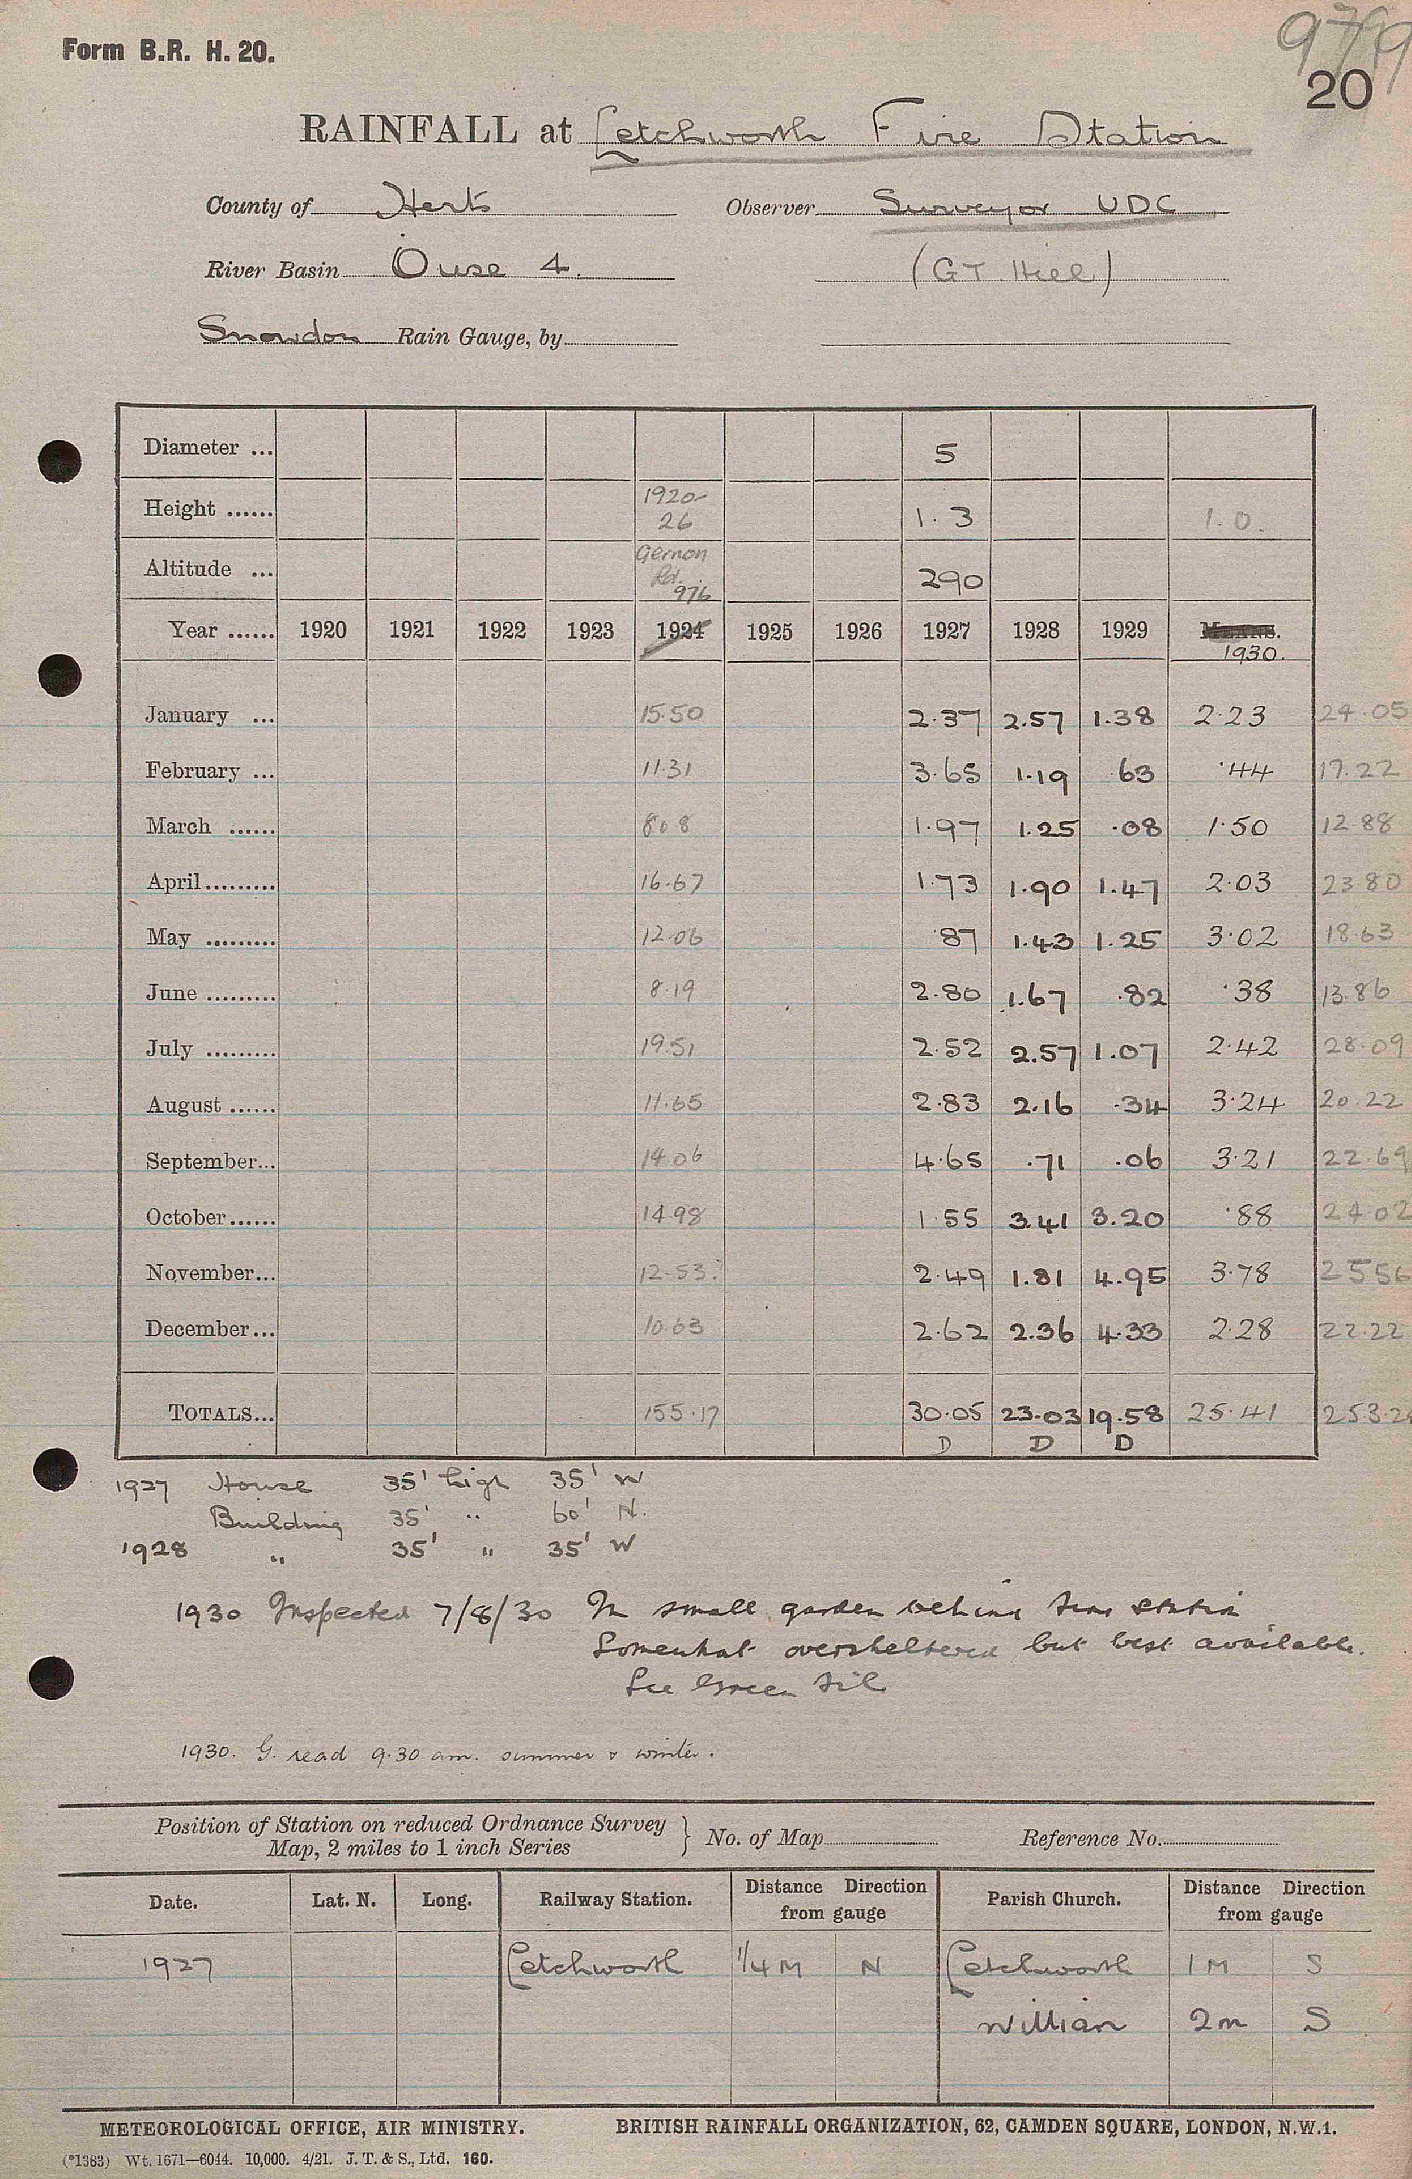 Form B.R. H. 20.
979
20
RAINFALL at Letchworth Fire Station
County of Herts Observer Surveyor UDC
River Basin Ouse 4. (GT Hill)
Snowdon Rain Gauge, by
Diameter ... 5
Height ...... 1920-26 1.3 1.0.
Altitude ... Gernon Rd. 976 290
Year ...... 1920 1921 1922 1923 1924 1925 1926 1927 1928 1929 MEANS. 1930.
January ... 15.50 2.37 2.57 1.38 2.23 24.05
February ... 11.31 3.65 1.19 .63 .44 17.22
March ...... 8.08 1.97 1.25 .08 1.50 12.88
April ......... 16.67 1.73 1.90 1.47 2.03 23.80
May ......... 12.06 .87 1.43 1.25 3.02 18.63
June ......... 8.19 2.80 1.67 .82 .38 13.86
July ......... 19.51 2.52 2.57 1.07 2.42 28.09
August ...... 11.65 2.83 2.16 .34 3.24 20.22
September... 14.06 4.65 .71 .06 3.21 22.69
October ...... 14.98 1.55 3.41 3.20 .88 24.02
November... 12.53 2.49 1.81 4.95 3.78 25.56
December... 10.63 2.62 2.36 4.33 2.28 22.22
TOTALS... 155.17 30.05 23.03 19.58 25.41 253.24
D D D
1927 House 35' high 35' W
Building 35' " 60' N.
1928 " 35' " 35' W
1930 Inspected 7/8/30 In small garden behind fire station
Somewhat oversheltered but best available.
See Green file
1930. G. read 9.30 am. summer & winter.
Position of Station on reduced Ordnance Survey
Map, 2 miles to 1 inch Series } No. of Map Reference No.
Date. Lat. N. Long. Railway Station. Distance Direction from gauge Parish Church. Distance Direction from gauge
1927 Letchworth 1/4 M N Letchworth 1 M S
Willian 2m S
METEOROLOGICAL OFFICE, AIR MINISTRY. BRITISH RAINFALL ORGANIZATION, 62, CAMDEN SQUARE, LONDON, N.W.1.
(*1383) Wt. 1671—6044. 10,000. 4/21. J. T. & S., Ltd. 160.